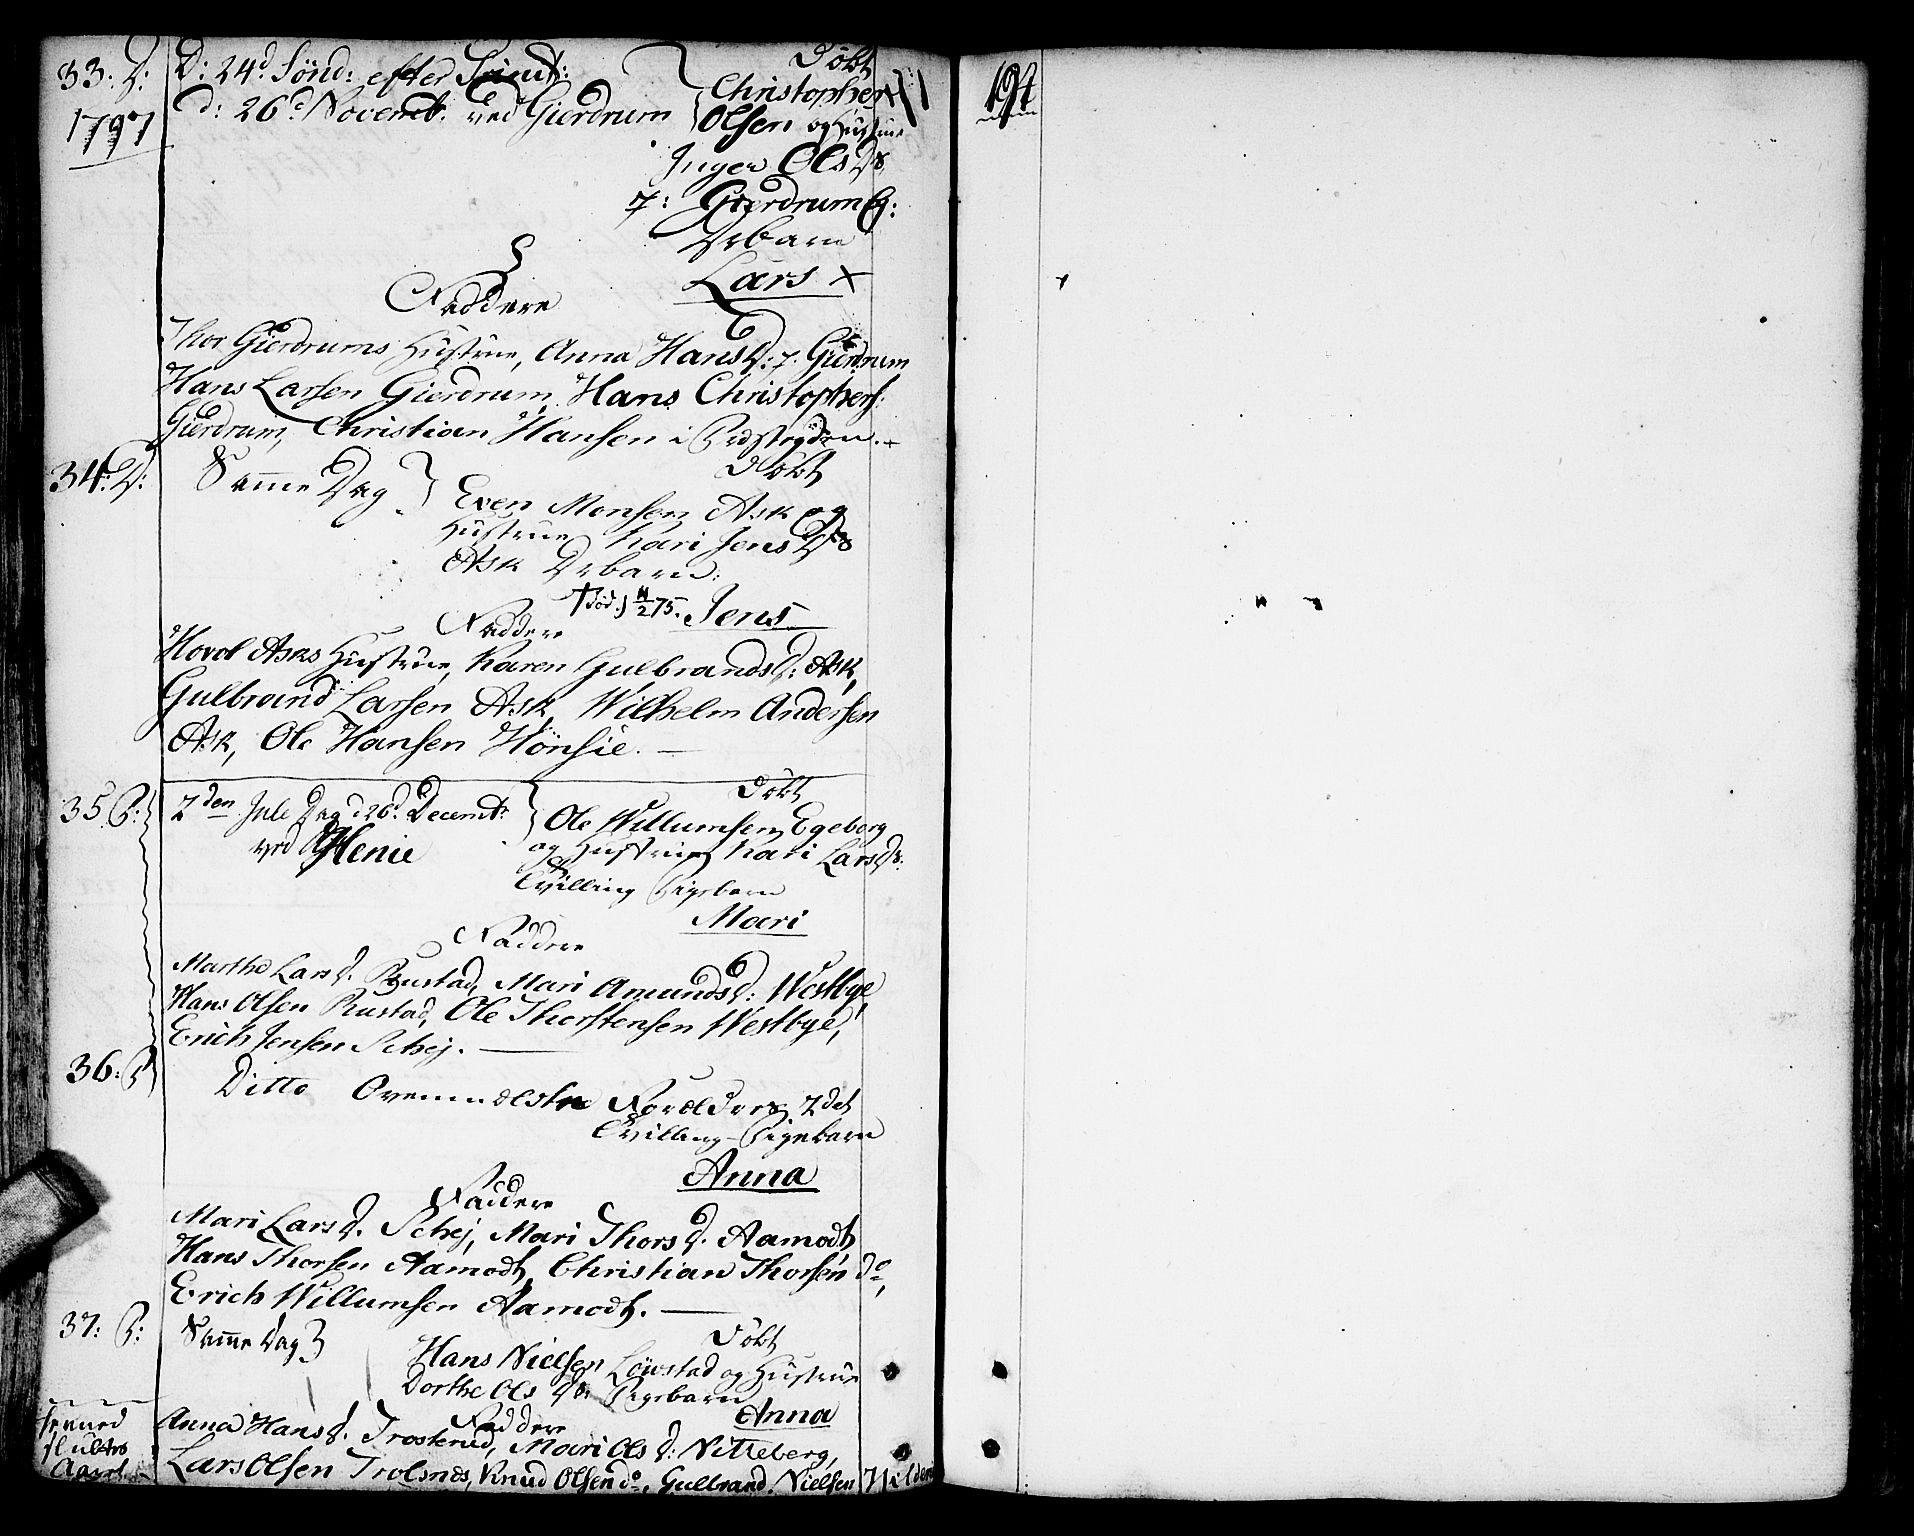 33. D:
1797
D: 24d Sönd: efter Trinit:
d: 26d Novemb: ved Gierdrum
Döbt
Christopher
Olsen og Hustrue
Inger Ols Dr
Gierdrum
Drbarn
Lars X
Faddere
Thor Gierdrums Hustrue, Anna Hans D: Gierdrum
Hans Larsen Gierdrum, Hans Christophers:
Gierdrum, Christian Hansen i
34: D:
Samme Dag
Döbt
Even Monsen Ask og
Hustrue Kari Jens Dr
Ask Drbarn:
† död 11/2 75. Jens
Faddere
Hovel Asks Hustrue, Karen Gulbrands D: Ask,
Gulbrand Larsen Ask, Wilhelm Andersen
Ask, Ole Hansen Hönsie.
35 P:
2den Jule Dag d 26d Decemb:
ved Henie
Döbt
Ole Willumsen Egeberg
og Hustrue Kari Lars Dr:
Tvilling Pigebarn
Mari
Faddere
Marthe Lars D. Rustad, Mari Amunds D: Westbye,
Hans Olsen Rustad, Ole Thorstensen Westbye,
Erich Jensen Schej.
36: P
Ditto Ovenmelste Forældres 2det
Tvilling-Pigebarn
Anna
Faddere
Mari Lars D. Schej, Mari Thors D. Aamodt,
Hans Thorsen Aamodt, Christian Thorsen do,
Erich Willumsen Aamodt.
37: P:
Samme Dag
Döbt
Hans Nielsen Löwstad og Hustrue
Dorthe Ols Dr Pigebarn
Anna
Faddere
Anna Hans D. Trosterud, Mari Ols D: Nitteberg,
Lars Olsen Trolsnes, Knud Olsen do, Gulbrand Nielsen Hilden
hermed
sluttes
Aaret